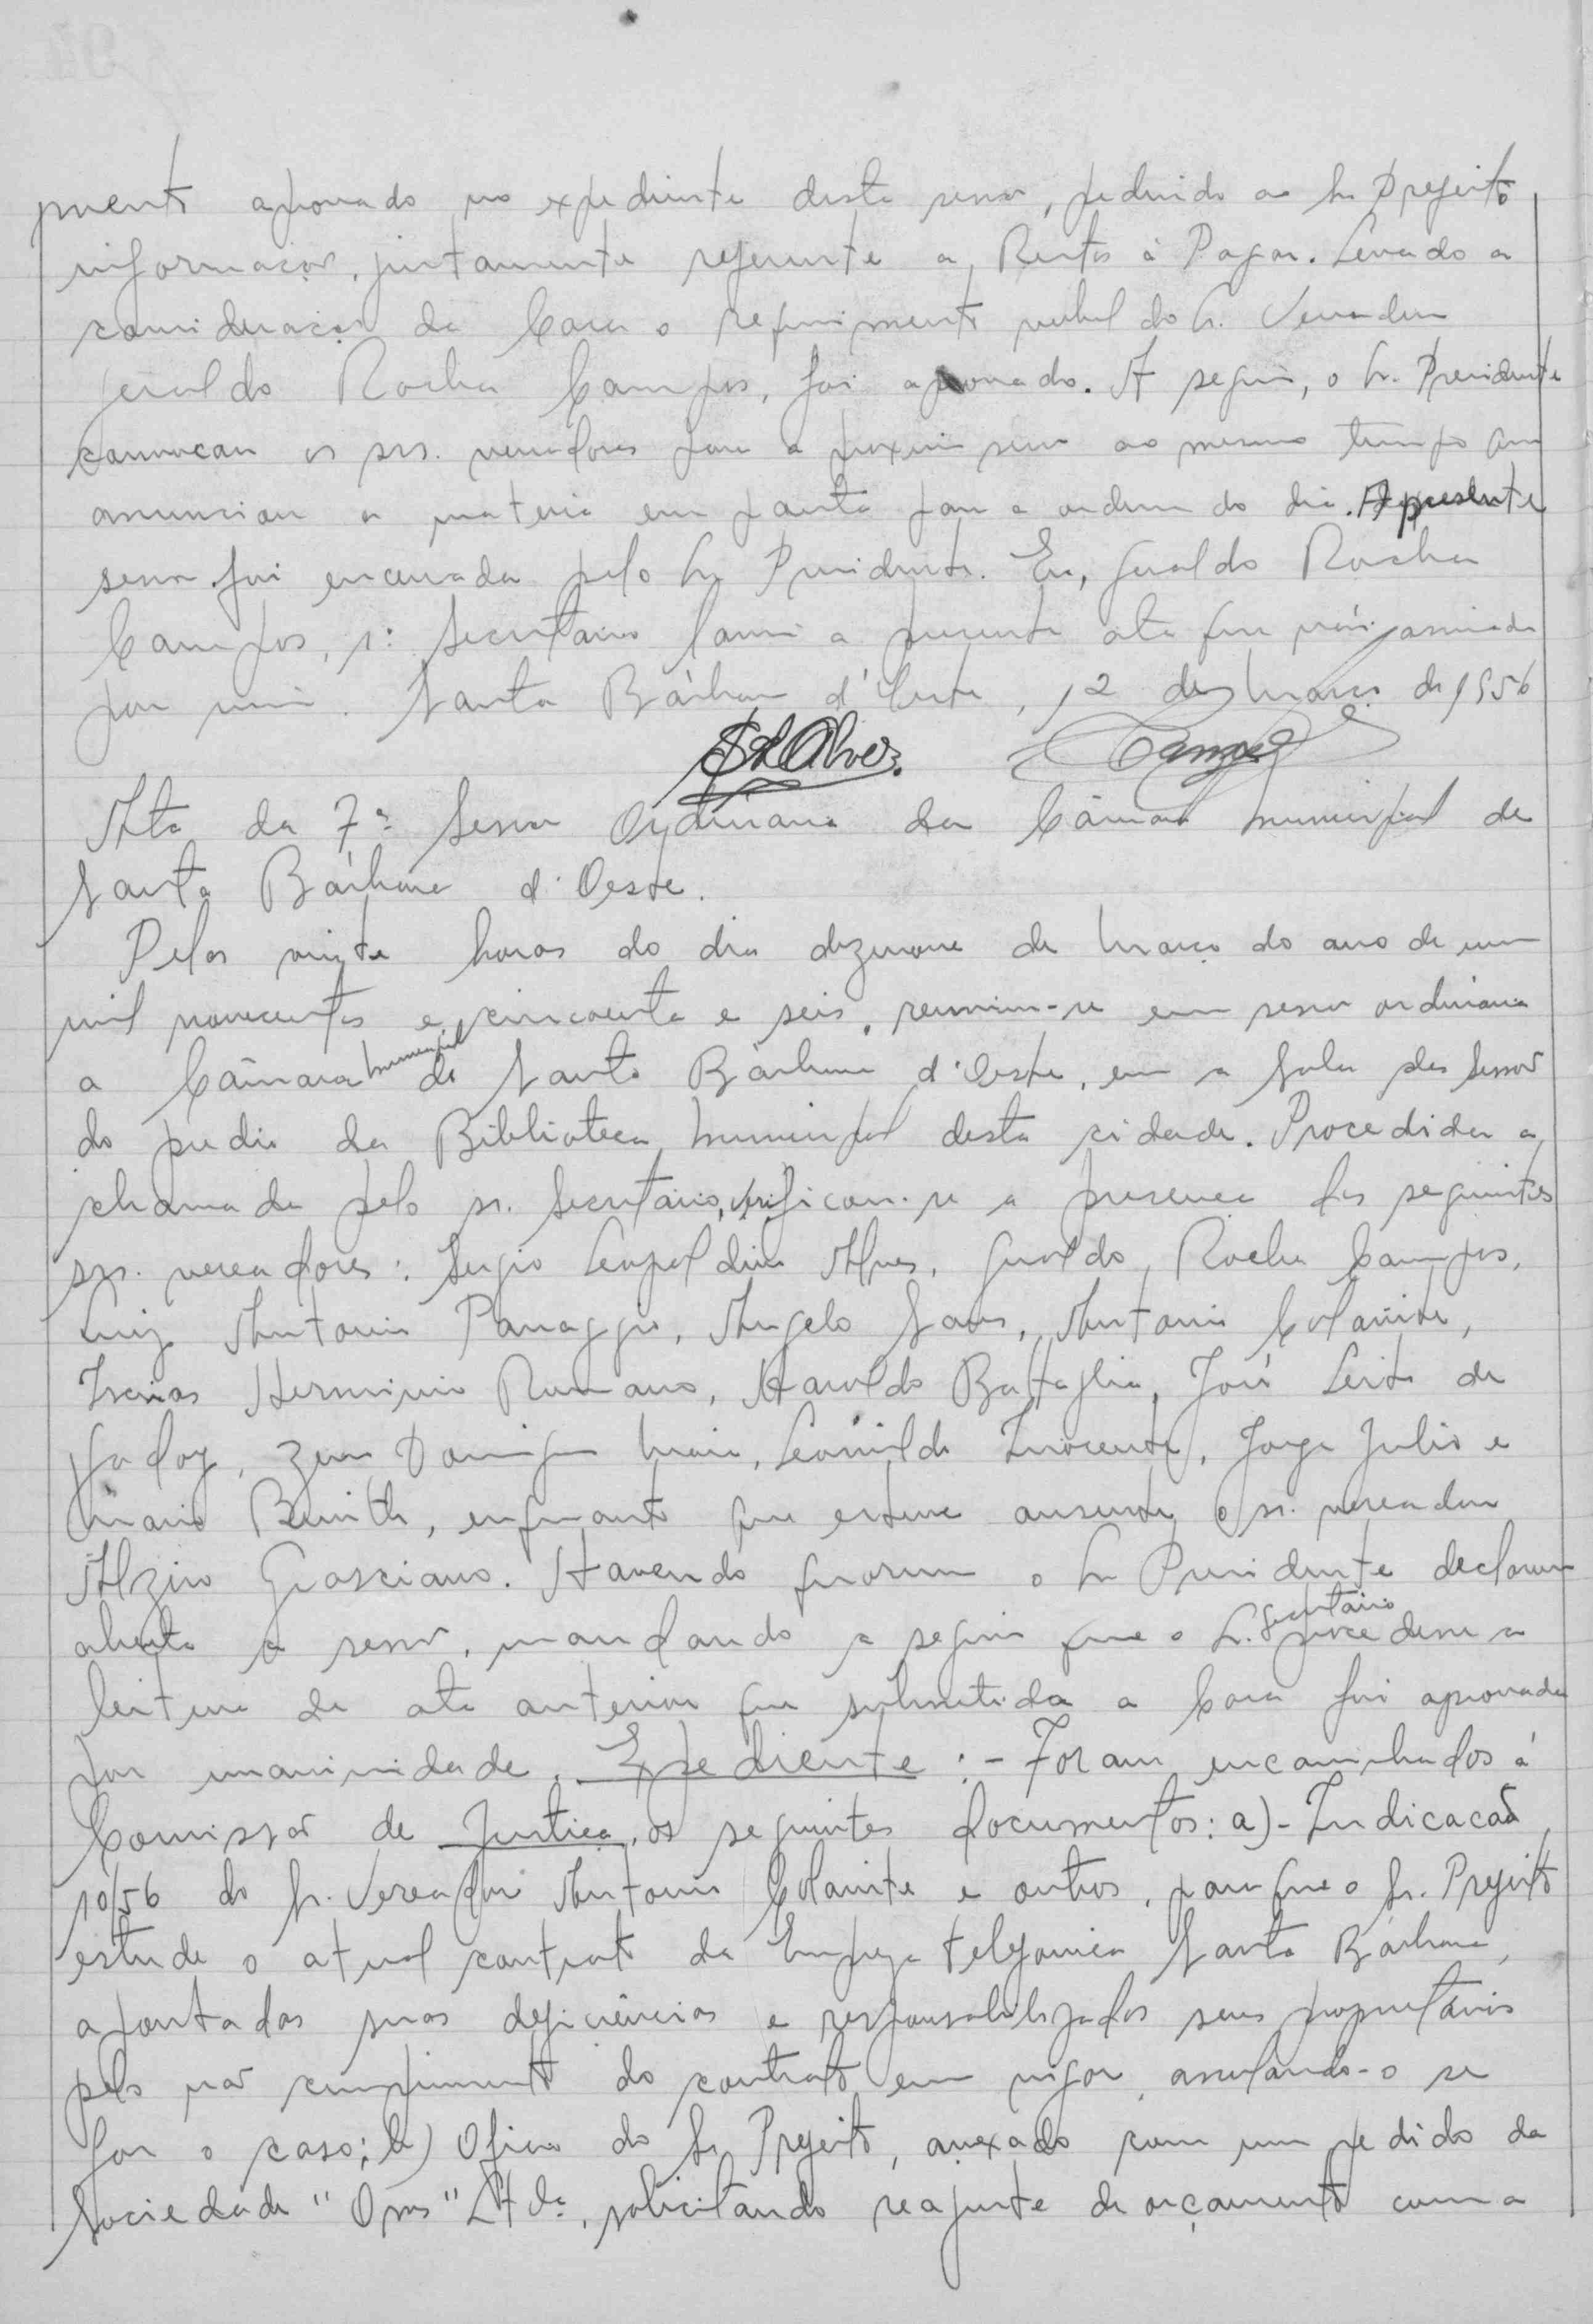 mento aprovado no expediente desta sessão, pedindo ao Sr. Prefeito
informação, justamente referente a Restos á Pagar. Levado a
consideração da Casa o requerimento verbal do Sr. Vereador
Geraldo Rocha Campos, foi aprovado. A seguir, o Sr. Presidente
convocou os srs. vereadores para a proxima sessão ao mesmo tempo que
anunciou a materia em pauta para a ordem do dia. A presente
sessão foi encerrada pelo Sr. Presidente. Eu, Geraldo Rocha
Campos, 1º Secretario lavrei a presente ata que vai assinada
por mim. Santa Bárbara d'Oeste, 12 de Março de 1956
S L Alves. Campos
Ata da 7ª Sessão Ordinaria da Câmara Municipal de
Santa Bárbara d'Oeste.
Pelas vinte horas do dia dezenove de Março do ano de um
mil novecentos e cincoenta e seis, reuniu-se em sessão ordinaria
a Câmara Municipal de Santa Bárbara d'Oeste, em a Sala das Sessões
do predio da Biblioteca Municipal desta cidade. Procedida a
chamada pelo sr. Secretário, verificou-se a presença dos seguintes
srs. vereadores: Sergio Leopoldino Alves, Geraldo Rocha Campos,
Luiz Antonio Panaggio, Angelo Sans, Antonio Colamite,
Isaias Herminio Romano, Haroldo Bataglia, José Leite de
Godoy, Domingos Maia, Leonildo Inocente, Jorge Julio e
Mario , enquanto que esteve ausente o sr. vereador
Alziro Grasciano. Havendo quorum o Sr. Presidente declarou
aberta a sessão, mandando a seguir que o Sr. Secretário procedesse a
leitura da ata anterior que submetida a Casa foi aprovada
por unanimidade. Expediente :- Foram encaminhados á
Comissão de Justiça, os seguintes documentos: a)- Indicacão
10/56 do Sr. Vereador Antonio Colamite e outros, para que o Sr. Prefeito
estude o atual contrato da Empreza telefonica Santa Bárbara,
apontadas suas deficiências e responsabilizados seus proprietários
pelo não cumprimento do contrato em vigor, anulando-o se
for o caso; b) Oficio do Sr. Prefeito, anexado com um pedido da
Sociedade "Oras" Ltda, solicitando reajuste de orçamento com a